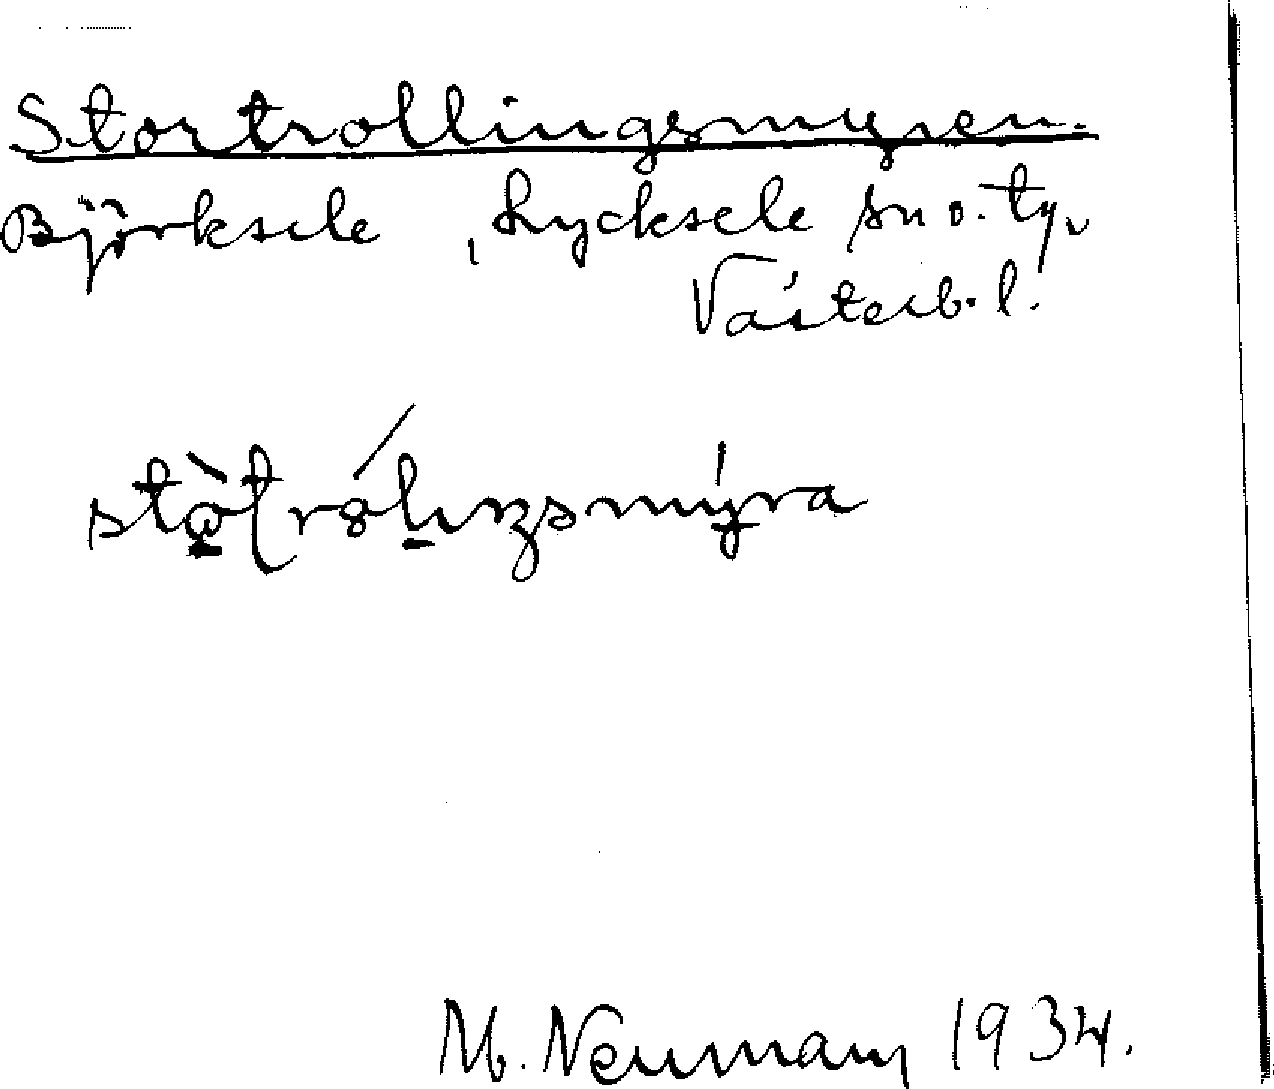 Stortrollingsmyren.
Björksele, Lycksele sn o. tg,
Västerb. l.
M. Neuman 1934.